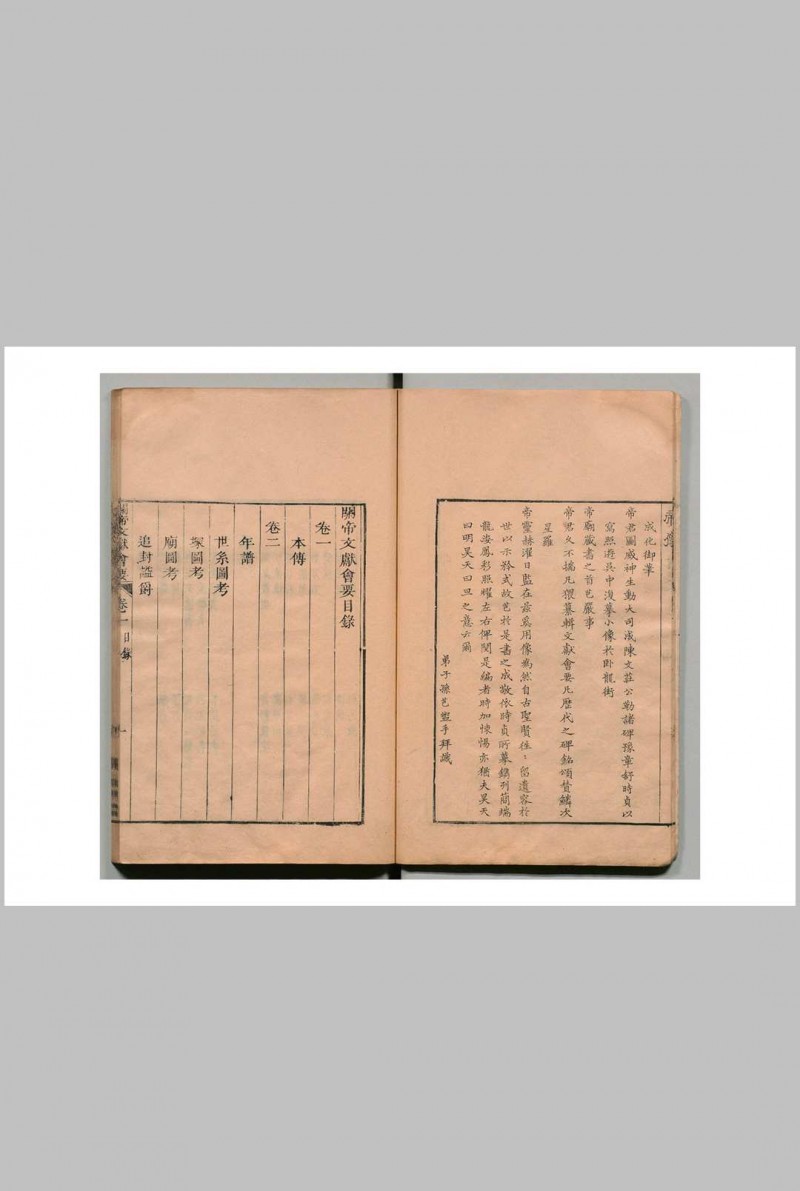 成化御筆
帝君圖威神生動大司成陳文莊公勒諸碑豫章舒時貞以
寫照遊吳中復摹小像於卧龍街
帝廟嚴書之首芑嚴事
帝君久不揣凡猥纂輯文獻會要凡歷代之碑銘頌贊鱗次
星羅
帝靈赫濯日監在茲奚用像爲然自古聖賢徃〻留遺容於
世以示矜式故芑於是書之成敬依時貞所摹鐫列簡端
龍姿鳳彩照耀左右俾閱是編者時加懷惕亦猶夫昊天
曰明昊天曰旦之意云爾
弟子孫芑盥手拜識
關帝文獻會要目錄
卷一
本傳
卷二
年譜
世系圖考
塚圖考
廟圖考
追封謚爵
關帝文獻會要 卷一 目錄 一